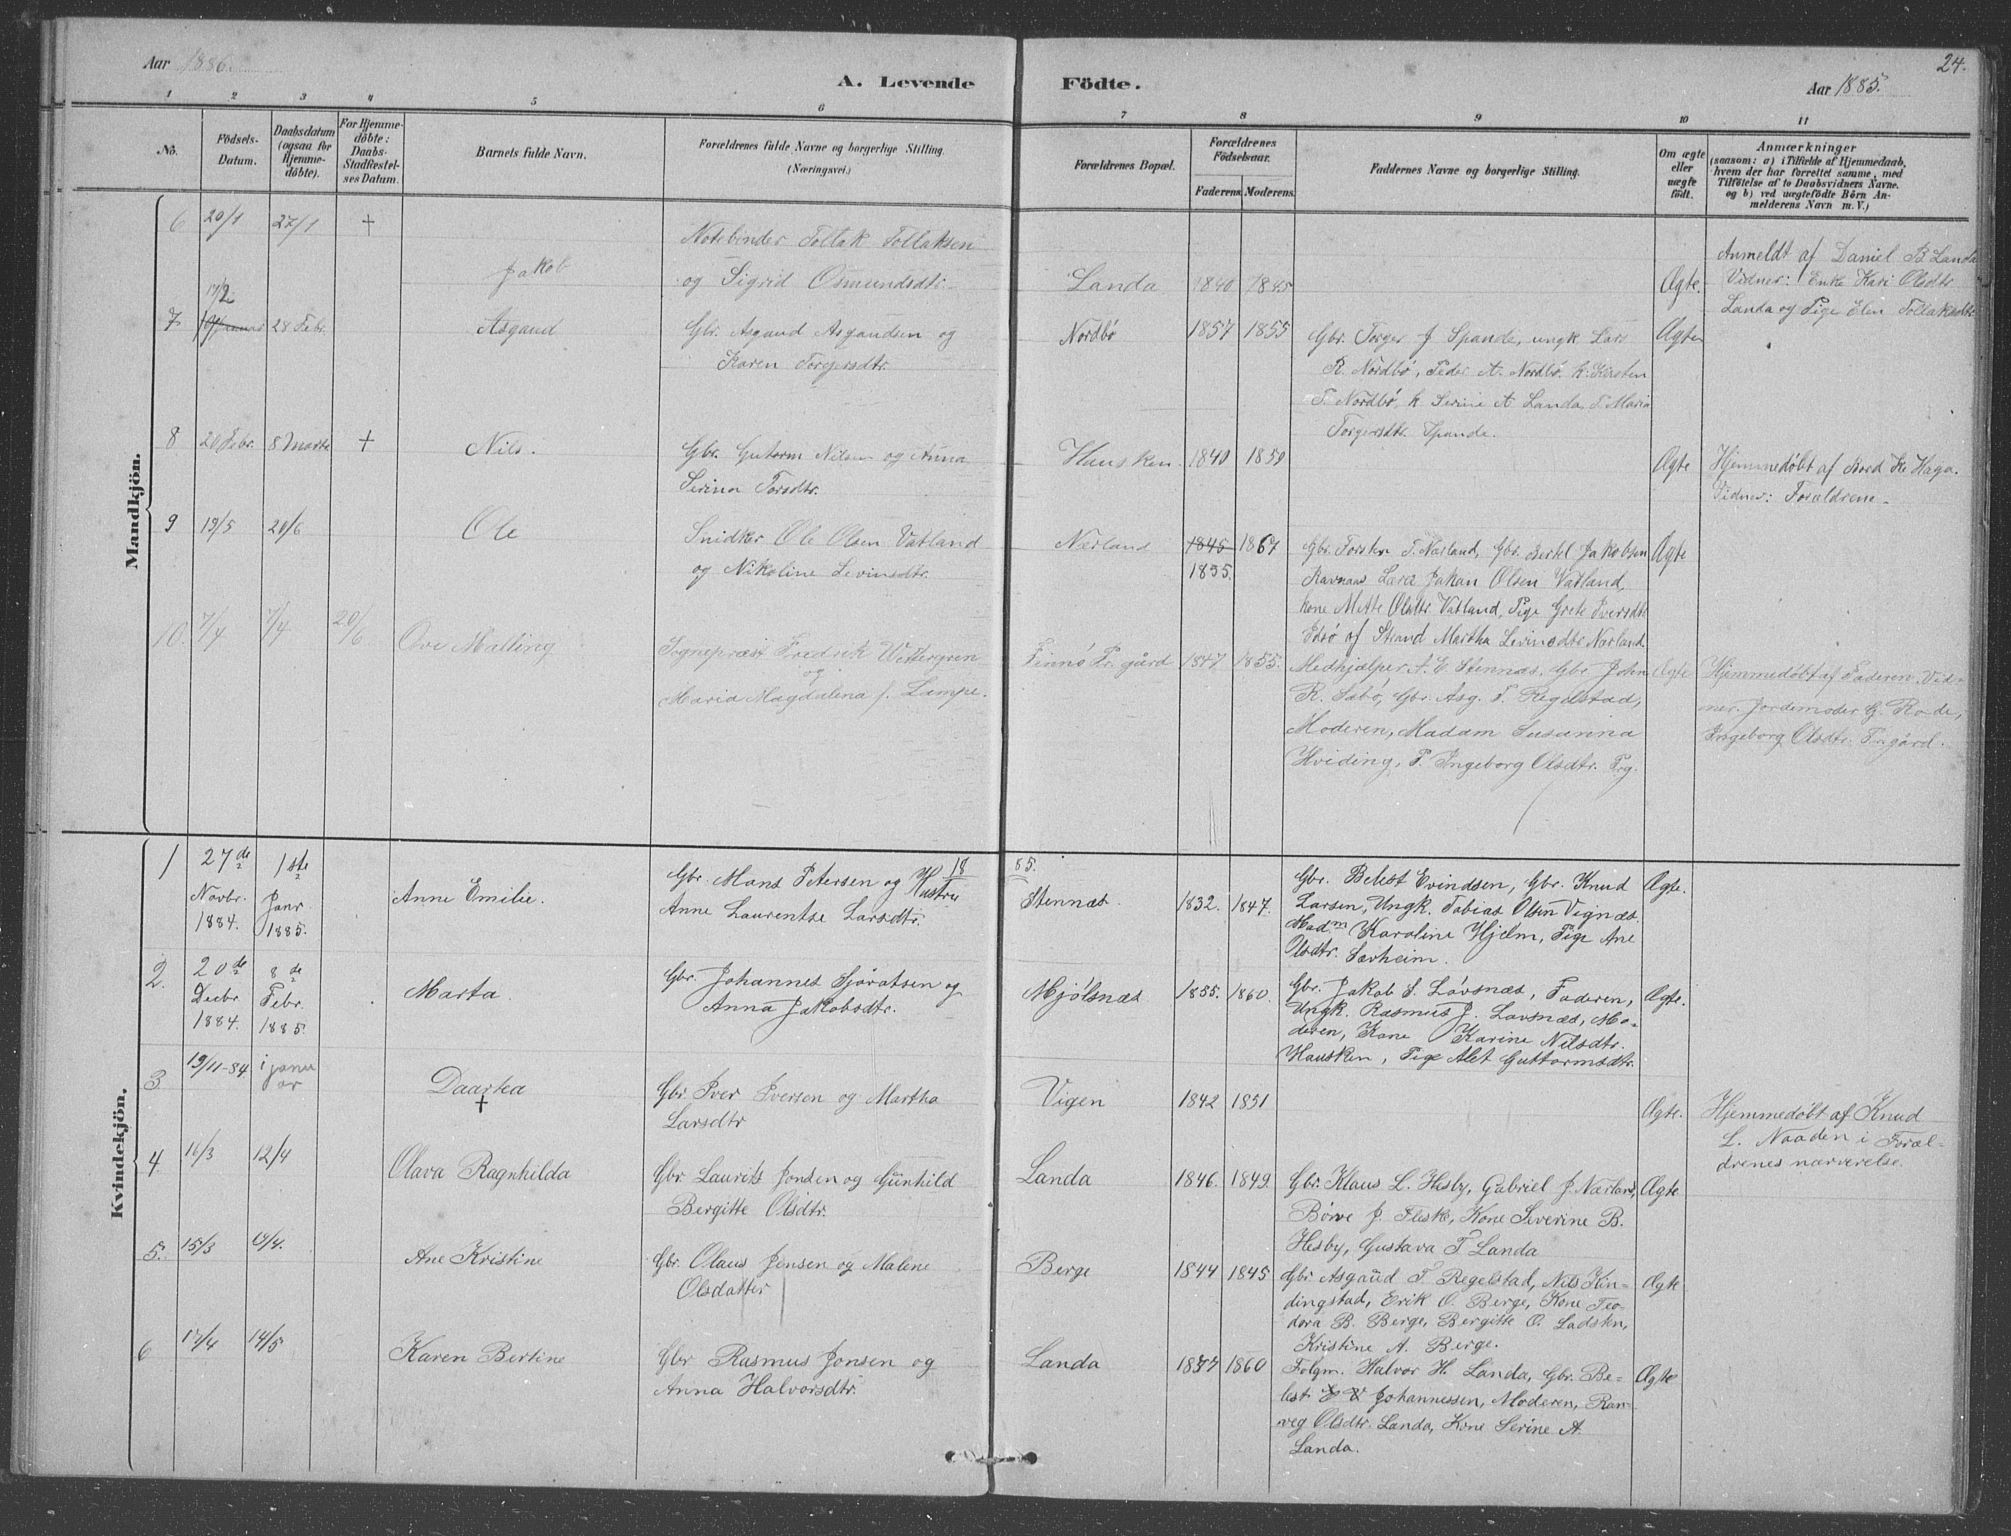 Aar 1886.
A. Levende
Födte.
24.
Aar 1885.
1 2 3 4 5 6 7 8 9 10 11
No.
Födsels-
Datum.
Daabsdatum
(ogsaa for
Hjemme-
döbte).
For Hjemme-
döbte:
Daabs-
Stadfæstel-
ses Datum.
Barnets fulde Navn.
Forældrenes fulde Navne og borgerlige Stilling.
(Næringsvei.)
Forældrenes Bopæl.
Forældrenes
Födselsaar.
Faderens. Moderens.
Faddernes Navne og borgerlige Stilling.
Om ægte
eller
uægte
födt.
Anmærkninger
(saasom: a) i Tilfælde af Hjemmedaab,
hvem der har forrettet samme, med
Tilföielse af to Daabsvidners Navne.
og b) ved uægtefödte Börn An-
melderens Navn m. V.)
Mandkjön.
6 20/1 27/1 +
Jakob
Notebinder Tollak Tollaksen
og Sigrid Osmundsdtr.
Landa 1840 1845
Ægte.
Anmeldt af Daniel B Landa
Vidner: Enke Kari Olsdtr
Landa og Pige Elen Tollaksdtr
7 17/2 28 Febr.
Asgaud
Gbr. Asgaud Asgaudsen og
Karen Torgersdtr.
Nordbø 1857 1855
Gbr. Torger J Spande, ungk Lars
R. Nordbø, Peder A. Nordbø. k. Kirsten
T. Nordbø, k Serine A Landa, P. Maria
Torgersdtr. Spande.
Ægte
8 20 Febr. 8 Marts +
Nils.
Gbr. Gutorm Nilsen og Anna
Serina Torsdtr.
Hausken 1840 1850
Ægte
Hjemmedøbt af Haga.
Vidner: Forældrene.
9 19/5 20/6
Ole
Snidker Ole Olsen Vatland
og Nikoline Levinsdtr.
Nærland 1845 1867
1855.
Gbr. Torsten T. Nærland, Gbr. Bertel Jakobsen
Ravnaas Lærer Jakan Olsen Vatland,
kone Mette Olsdtr Vatland, Pige Grete Iversdtr
af Strand Martha Levinsdtr Nærland
Ægte
10. 7/4 7/4 20/6
Ove Malling
Sognepræst Fredrik Wettergreen
og
Maria Magdalena f. Lampe.
Finnø Pr.gård 1847 1855.
Medhjælper A. E. Stennæs, Gbr John
R. Sabø, Gbr. Asg. T. Regelstad,
Moderen, Madam Susanna
Hviding, P. Ingeborg Olsdtr. Prg.
Ægte
Hjemmedøbt af Faderen. Vid-
ner. Jordemoder G. Rode,
Ingeborg Olsdtr. Prgård.
Kvindekjön.
1885.
1 27de
Novbr.
1884.
1ste
Janr
1885.
Anne Emilie.
Gbr. Mans Petersen og Hustru
Anne Laurentse Larsdtr.
Stennæs. 1832. 1847.
Gbr. Belest Evindsen, Gbr. Knud
Larsen, Ungk. Tobias Olsen Vignæs.
Madm Karoline Hjelm, Pige Ane
Olsdtr. Sørheim.
Ægte.
2. 20de
Decbr
1884.
8de
Febr.
1885.
Marta.
Gbr. Johannes Sjøratsen og
Anna Jakobsdtr.
Mjølsnæs 1855. 1860.
Gbr. Jakob S. Løvsnæs, Faderen,
Ungk. Rasmus J. Løvsnæs, Mo-
deren, Kone Karine Nilsdtr.
Hausken, Pige Alet Guttormsdtr.
Ægte.
3 19/11-84 i janu
ar
Daartea
+
Gbr. Iver Iversen og Martha
Larsdtr
Vigen 1842 1851
Ægte.
Hjemmedøbt af Knud
L. Naaden i Foræl-
drenes nærværelse.
4 16/3 12/4
Olava Ragnhilda
Gbr. Laurits Jonsen og Gunhild
Bergitte Olsdtr.
Landa 1846. 1849.
Gbr. Klaus L. Hesby, Gabriel J. Nærland,
Børve J. Fleske, Kone Severine B.
Hesby, Gustava T Landa
Ægte
5. 15/3
Ane Kristine
Gbr. Olaus Jensen og Malene
Olsdatter
Berge 1844 1845
Gbr. Asgaud T. Regelstad, Nils Kin-
dingstad, Erik O. Berge, Kone Teo-
dora B. Berge, Bergitte O. Ladstèn,
Kristine A. Berge.
Ægte
6 17/4 14/5
Karen Bertine
Gbr Rasmus Jonsen og
Anna Halvorsdtr.
Landa 1857 1860
Folgm. Halvor H. Landa, Gbr. Be-
lest Johannessen, Moderen, Ran-
veg Olsdtr. Landa, Kone Serine A.
Landa.
Ægte